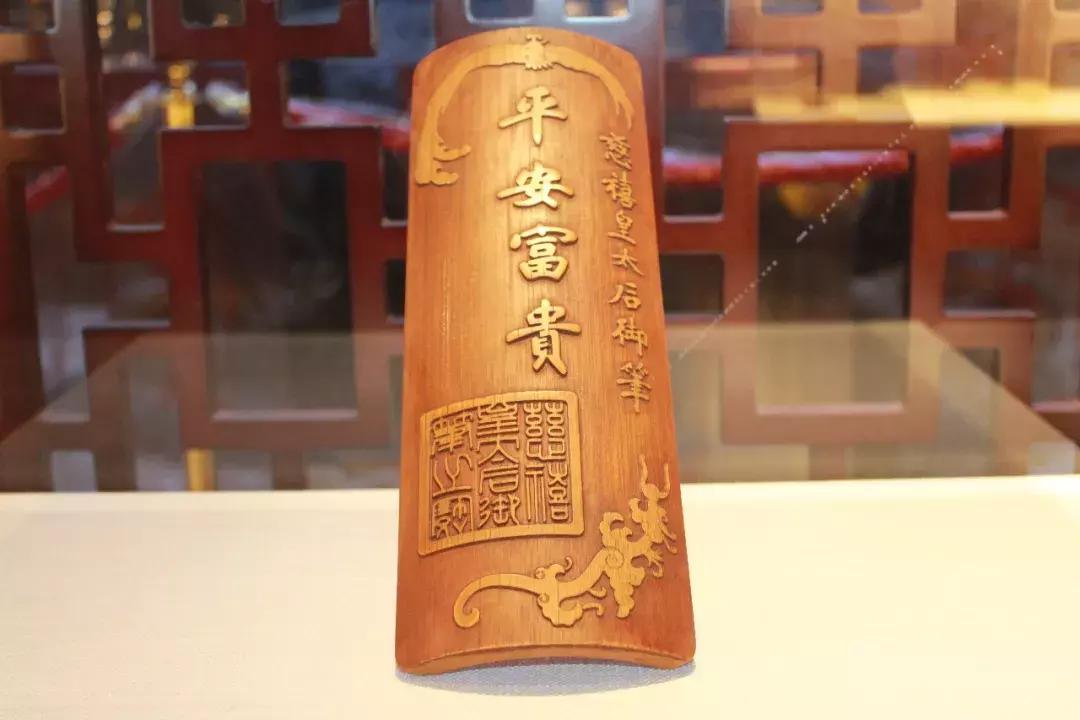 慈禧皇太后御筆
平安富貴
慈禧
皇太后御
筆之寶